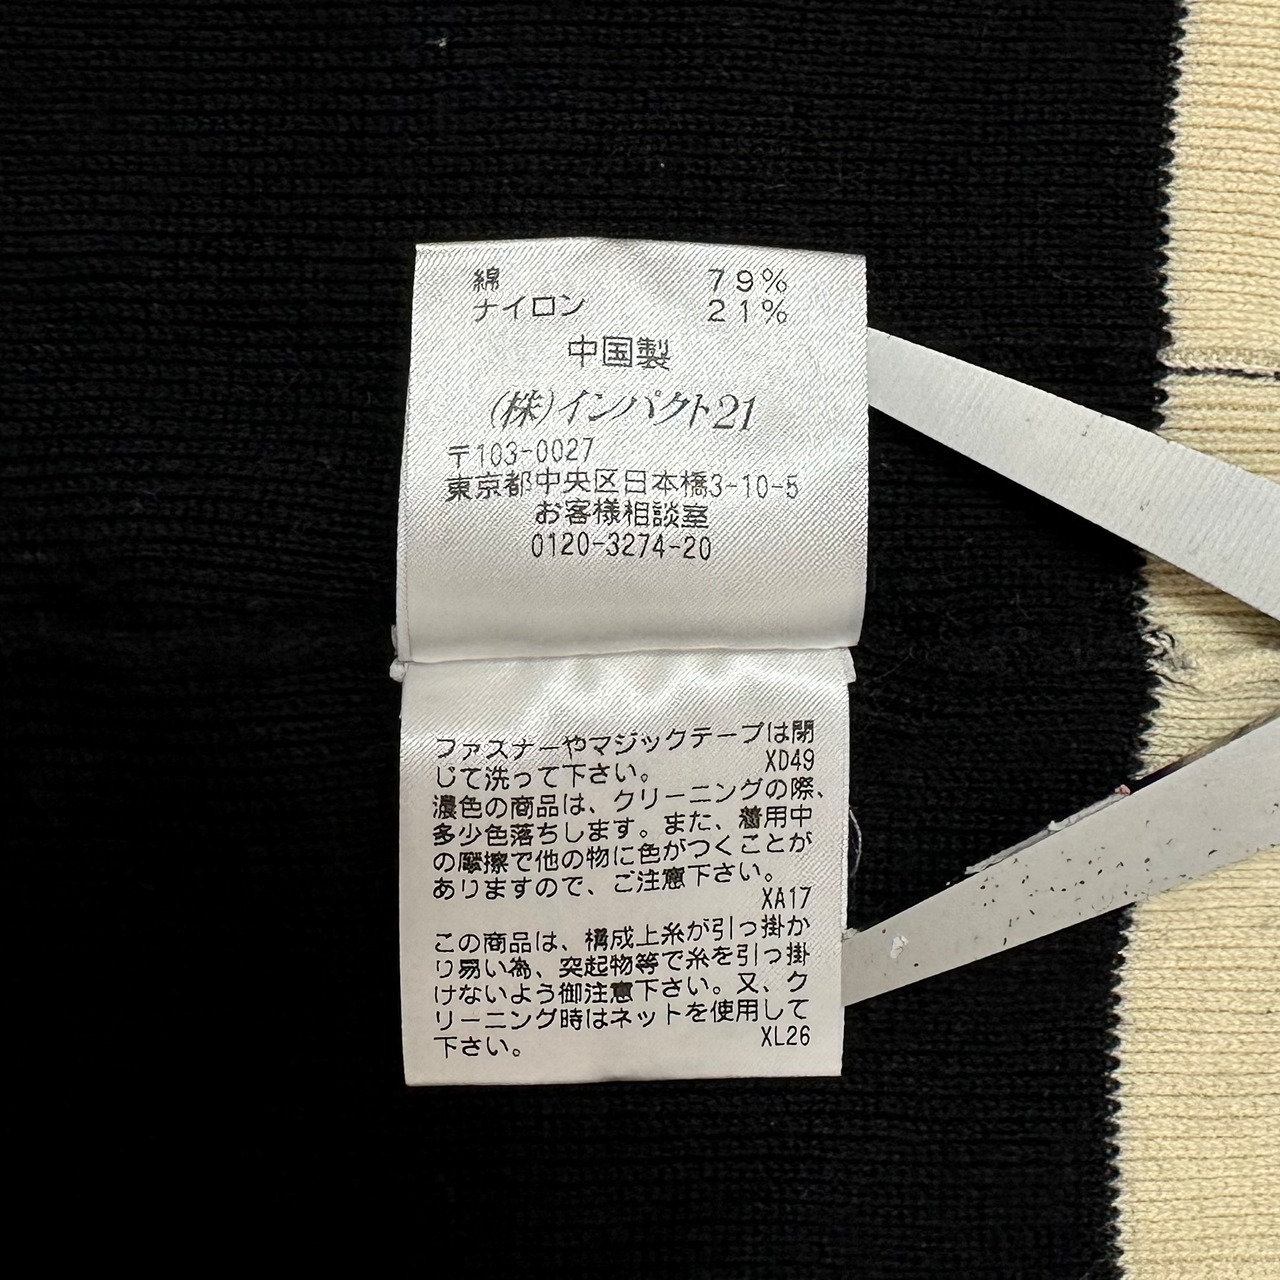 綿 79%
ナイロン 21%
中国製
(株)インパクト21
〒103-0027
東京都中央区日本橋3-10-5
お客様相談室
0120-3274-20
ファスナーやマジックテープは閉
じて洗って下さい。 XD49
濃色の商品は、クリーニングの際、
多少色落ちします。また、着用中
の摩擦で他の物に色がつくことが
ありますので、ご注意下さい。
XA17
この商品は、構成上糸が引っ掛か
り易い為、突起物等で糸を引っ掛
けないよう御注意下さい。又、ク
リーニング時はネットを使用して
下さい。 XL26